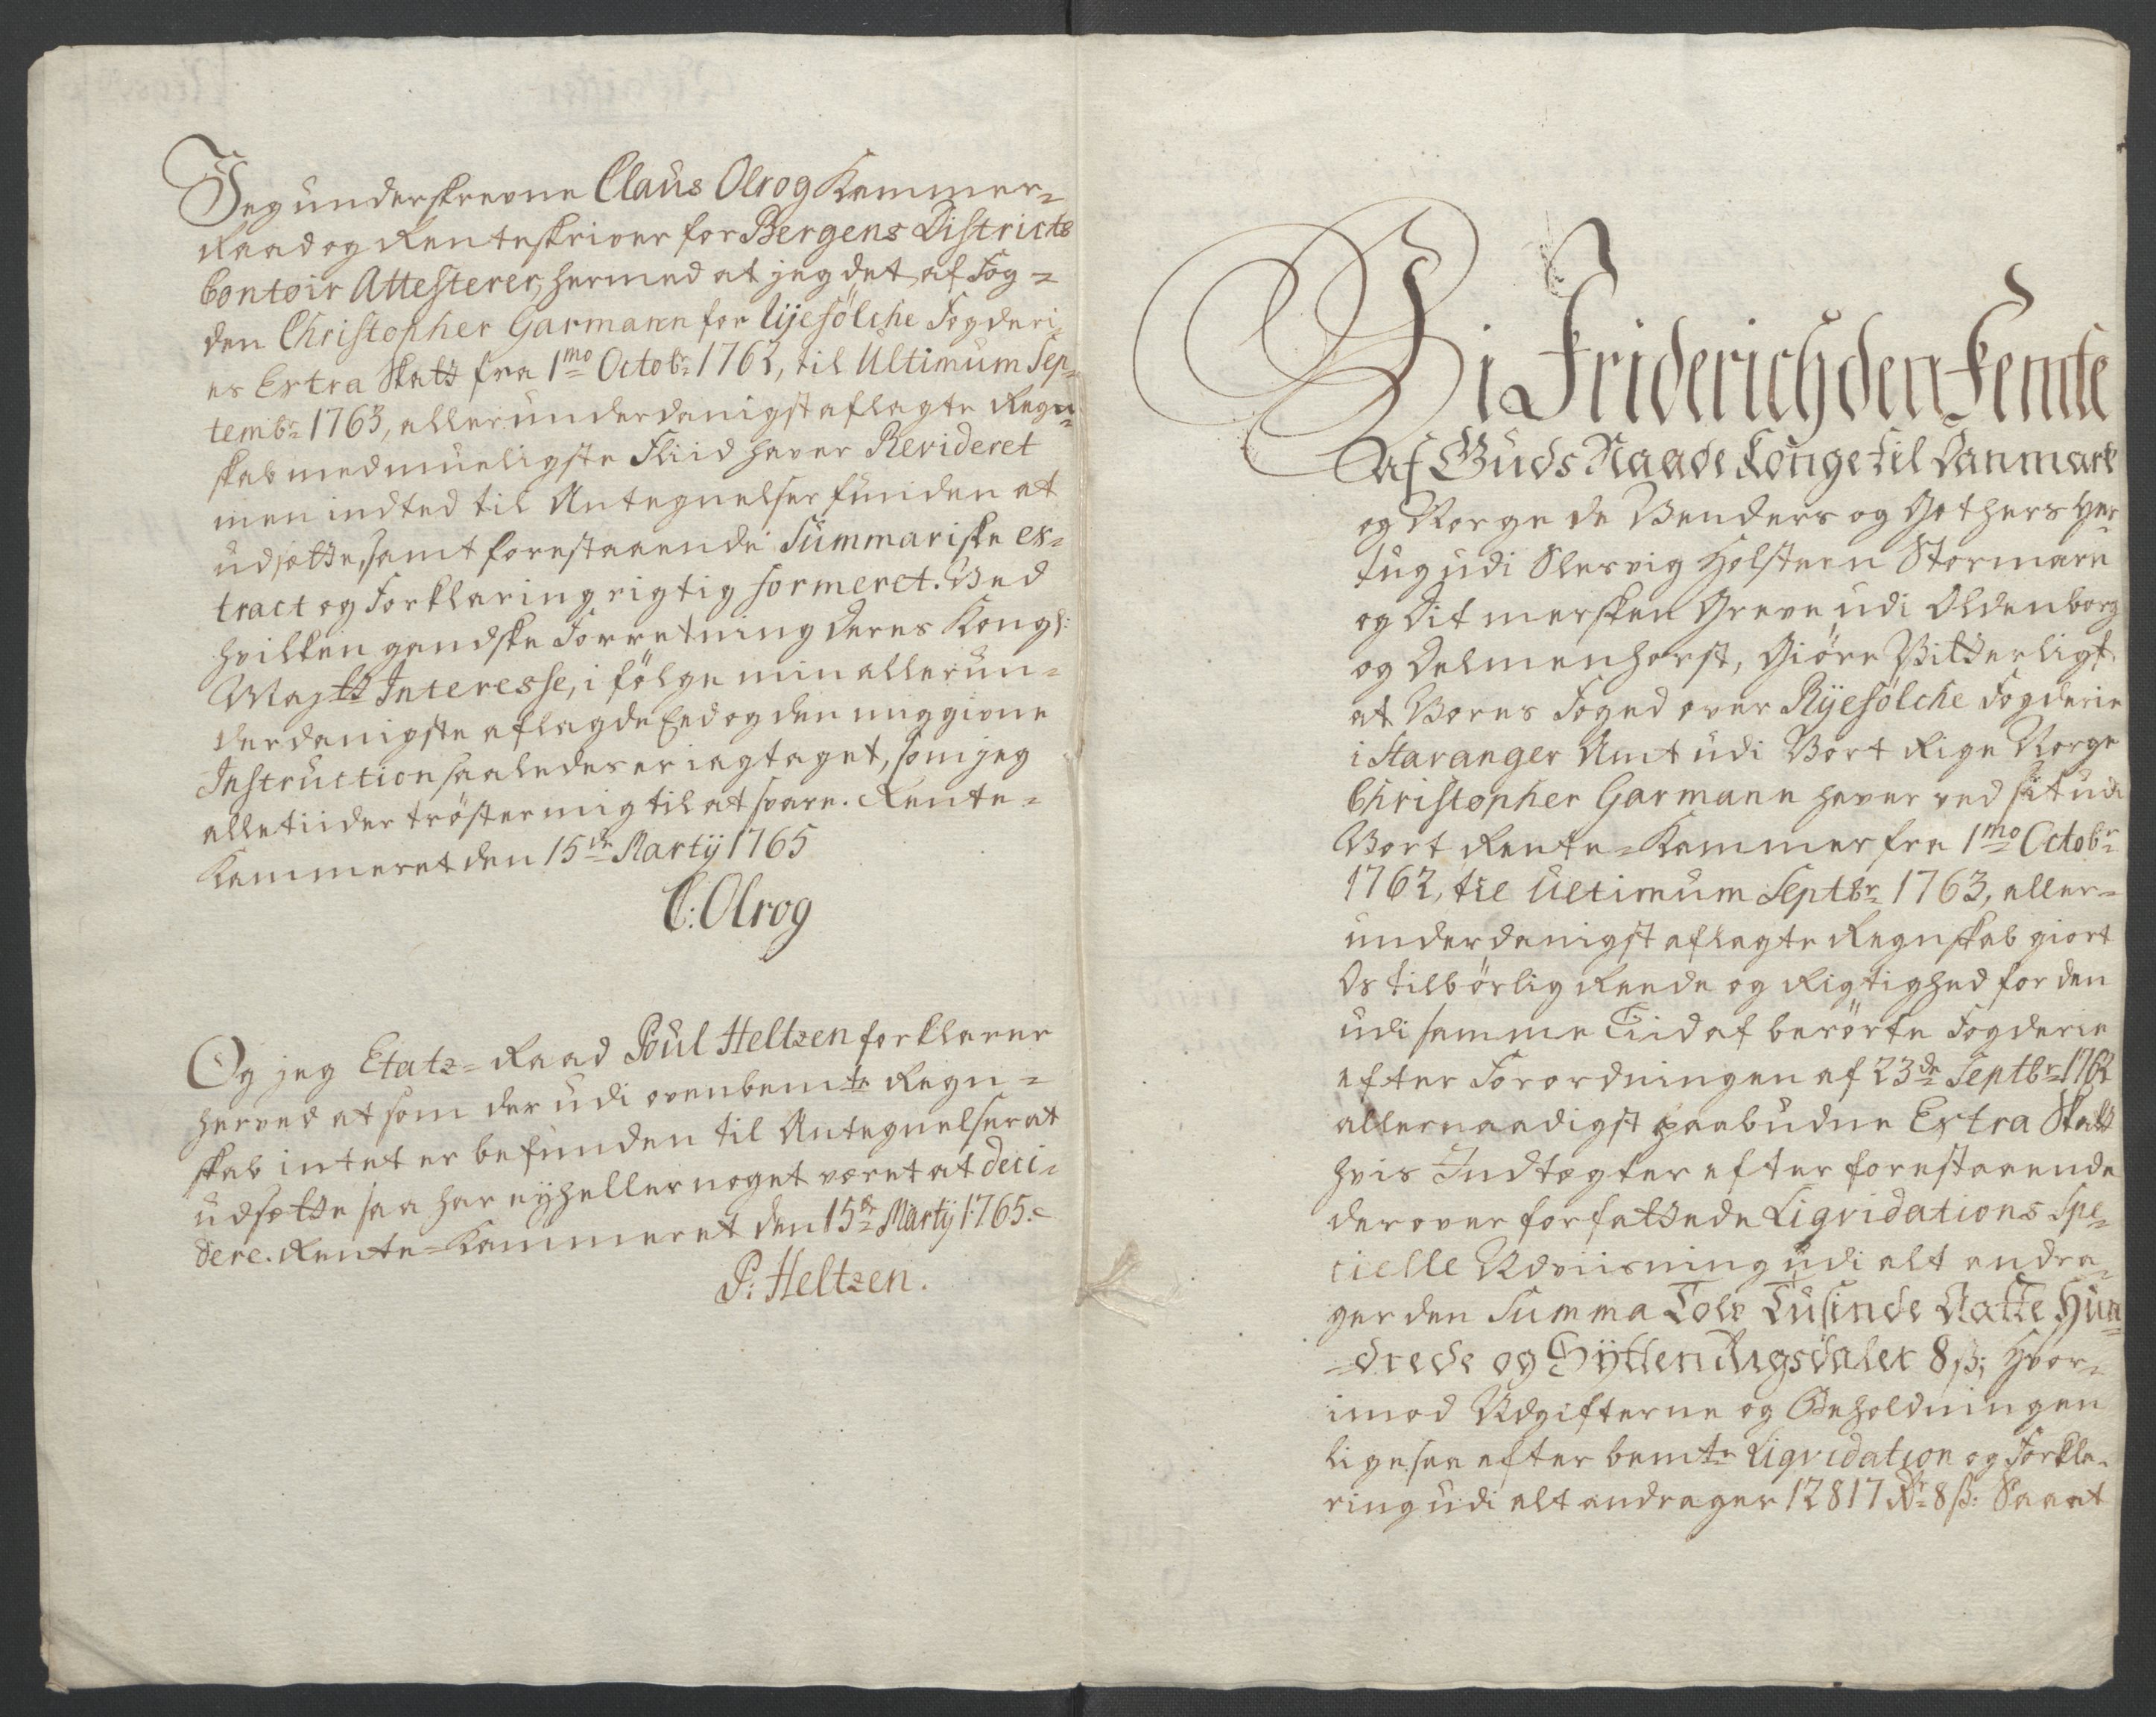 Jeg underskrevne Claus Olrog Kammer-
Raad og Renteskriver for Bergens Districts
Contoir Attesterer, hermed at jeg det af Fog-
den Christopher Garmann for Ryefölche Fogderi-
es Extra Skatt fra 1mo Octobr 1762, til Ultimum Sep-
tembr 1763, allerunderdanigst aflagte Regn-
skab med mueligste Fliid haver Revideret
men indted til Antegnelser funden at
udsætte, samt forestaaende Summariske ex-
tract og Forklaring rigtig formeret. Ved
hvilken gandske Forretning Deres Kongl:
Maytts Interesse, i fölge min allerun-
derdanigste aflagde Eed og den mig givne
Instruction saaledes er iagtaget, som jeg
alletiider tröster mig til at svare. Rente-
Kammeret den 15de Martij 1765
C: Olrog
Og jeg Etatz-Raad Poul Heltzen forklarer
herved at som der udi ovenbemte Regn-
skab intet er befunden til Antegnelser at
udsætte saa har eyheller noget været at deci-
dere. Rente-Kammeret den 15de Martij 1765.
P: Heltzen.
Vi Friderich den Femte
Af Guds Naade Konge til Danmark
og Norge de Venders og Gothers Her-
tug udi Slesvig Holsteen Stormarn
og Ditmersken Greve udi Oldenborg
og Delmenhorst, Giöre Vitterligt
at Vores Foged over Ryefölche Fogderie
i Stavanger Amt udi Vort Rige Norge
Christopher Garmann haver ved sit udi
Vort Rente-Kammer fra 1mo Octobr
1762, til Ultimum Septbr 1763, aller-
underdanigst aflagte Regnskab giort
Os tilbörlig Reede og Rigtighed for den
udi samme Tiid af berörte Fogderie
efter Forordningen af 23de Septbr 1762
allernaadigst paabudne Extra Skatt
hvis Indtægter efter forestaaende
derover forfattede Liqvidations Spe-
cielle Udviisning udi alt andra-
ger den Summa Tolv Tusinde Aatte Hun-
drede og Sytten Rigsdaler 8 ß; Hvor-
imod Udgifterne og Beholdningen
ligesaa efter bemte Liqvidation og Forkla-
ring udi alt andrager 12817 Rd 8 ß: Saa at